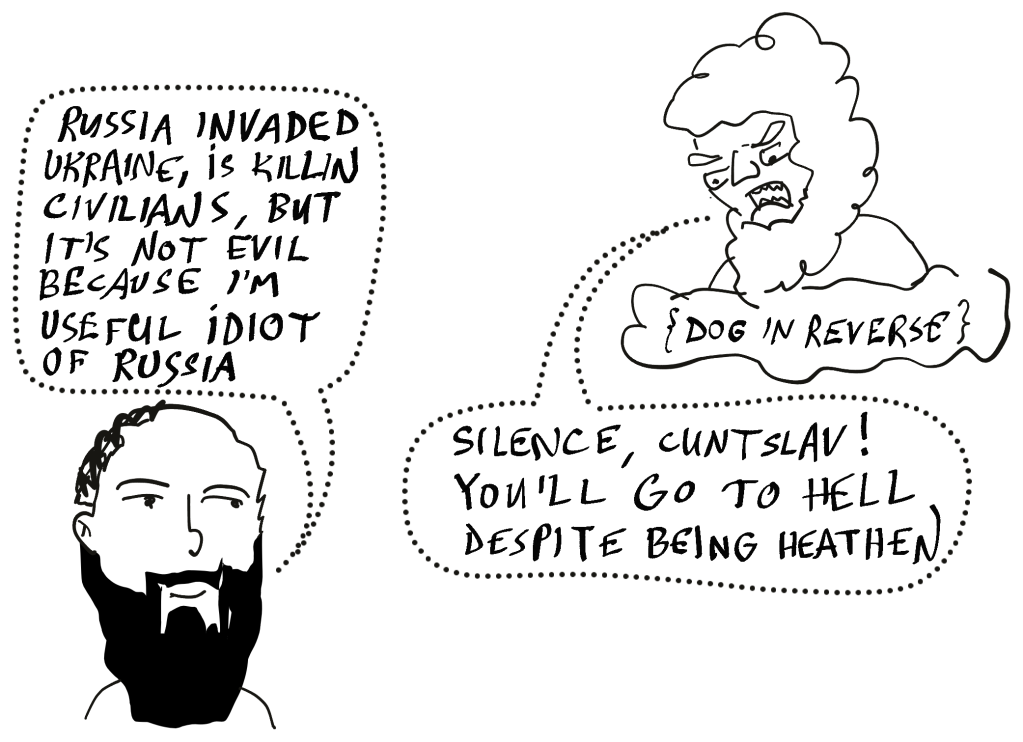 RUSSIA INVADED
UKRAINE, iS KILLIN
CIVILIANS, BUT
IT'S NOT EVIL
BECAUSE I'M
USEFUL iDIOT
OF RUSSIA
{DOG IN REVERSE}
SILENCE, CUNTSLAV!
YOU'LL GO TO HELL
DESPITE BEING HEATHEN